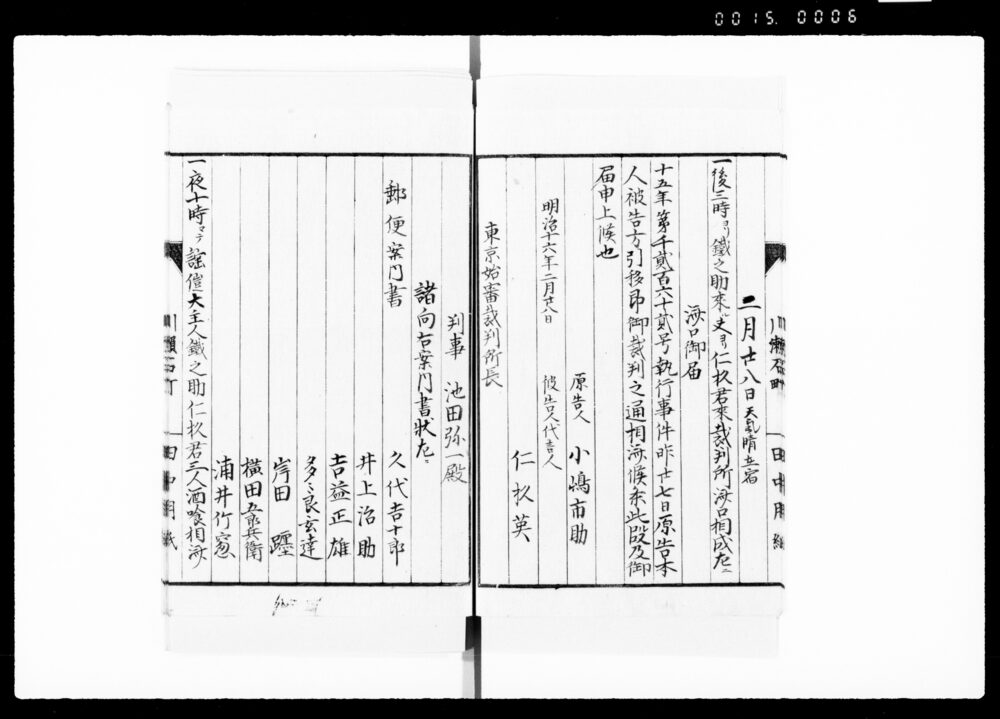 0015. 0006
川瀬石町 田中用紙
二月廿八日 天氣晴 在宿
一後三時ヨリ鐵之助來ル 夫ヨリ仁杦君來裁判所済口相成左ニ
済口御届
十五年第千貳百六十貳号執行事件昨廿七日原告ホ
人被告方引移即御裁判之通相済候条此段及御
届申上候也
明治十六年二月廿八日
原告人 小嶋市助
被告人代言人
仁杦英
東京始審裁判所長
判事 池田弥一殿
諸向右案内書状左ニ
郵便案内書
久代吉十郎
井上治助
吉益正雄
多々良玄達
岸田
横田五郎兵衛
浦井竹窓
一夜十時マテ 大主人鐵之助仁杦君三人酒喰相済
川瀬石町 田中用紙